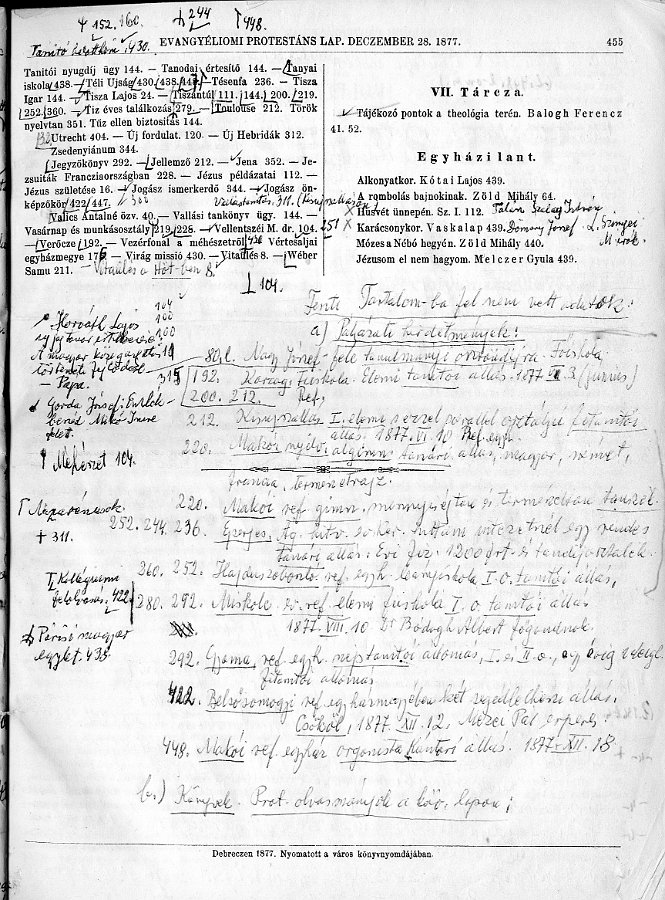 152. 160. 244 448.
Tanító 430.
EVANGYÉLIOMI PROTESTÁNS LAP. DECZEMBER 28. 1877.
455
Tanitói nyugdij ügy 144. — Tanodai értesitő 144. — Tanyai
iskola 438. — Téli Ujság 430. 438. 447. — Tésenfa 236. — Tisza
Igar 144. — Tisza Lajos 24. — Tiszántúl 111. 144. 200. 219.
252. 360. — Tiz éves találkozás 279. — Toulouse 212. Török
nyelvtan 351. Tűz ellen biztositás 144.
Utrecht 404. — Új fordulat. 120. — Új Hebridák 312.
Zsedenyiánum 344.
Jegyzőkönyv 292. — Jellemző 212. — Jena 352. — Je-
zsuiták Francziországban 228. — Jézus példázatai 112. —
Jézus születése 16. — Jogász ismerkedő 344. — Jogász ön-
képzőkör 422. 447.
Választmány 311.
Valics Antalné özv. 40. — Vallási tankönyv ügy. 144. —
Vasárnap és munkásosztály 219. 228. — Vellentszéi M. dr. 104.
— Verőcze 192. — Vezérfonal a méhészetről 436 Vértesaljai
egyházmegye 176 — Virág missió 430. — Vitaülés 8. — Wéber
Samu 211. — Vitaülés a Höt-ben 8.
104.
VII. Tárcza.
Tájékozó pontok a theológia terén. Balogh Ferencz
41. 52.
Egyházi lant.
Alkonyatkor. Kótai Lajos 439.
A rombolás bajnokinak. Zöld Mihály 64.
Husvét ünnepén. Sz. I. 112. Talán Szilágyi István
251 Karácsonykor. Vaskalap 439. Domány József
Mózes a Nébó hegyén. Zöld Mihály 440.
Jézusom el nem hagyom. Melczer Gyula 439.
Fenti Tartalom-ba fel nem vett adatok:
a) Pályázati hirdetmények:
Horváth Lajos
A magyar közegyházi
történeti fejlődése
— Pápa.
315
80. l. Nagy József-féle tanulmányi ösztöndíjra. Főiskola
192. Karczagi főiskola. Elemi tanítói állás. 1877 VI. 3. (június)
200. 212. Ref.
Gorda József: Emlék-
beszéd Mikó Imre
felett.
212. Kisújszállás I. elemi s ezzel parallel osztályú főtanítói
állás. 1877. VI. 10 Ref. egyh.
Méhészet 104.
220. Makói nyilv. algimn. tanári állás, magyar, német,
francia, természetrajz.
Nazarénusok
311.
220. Makói ref. gimn. mennyiségtan és természettan tanszék.
252. 244. 236. Eperjes. Ág. hitv. ev. ker. tanintézetnél egy rendes
tanári állás. Évi fiz. 1200 frt. és tandíjosztalék.
260. 252. Hajduszoboszló. ref. egyh. leányiskola I. o. tanítói állás,
Kollégiumi
felolvasás. 422
280. 292. Miskolc. ev. ref. elemi fiúiskola I. o. tanítói állás
1877. VIII. 10 Dr Bódogh Albert főgondnok.
Párisi magyar
egylet. 435.
292. Gyoma, ref. egyh. néptanítói állomás, I. és II. o., egy évig ideigl.
főtanítói állomás
422. Belsősomogyi ref. egyházmegyében két segédlelkészi állás.
Csököl, 1877. XII. 12. Mezei Pál esperes
448. Makói ref. egyház orgonista kántori állás. 1877. XII. 18
b.) Könyvek. Prot. olvasmányok a köv. lapon:
Debreczen 1877. Nyomatott a város könyvnyomdájában.